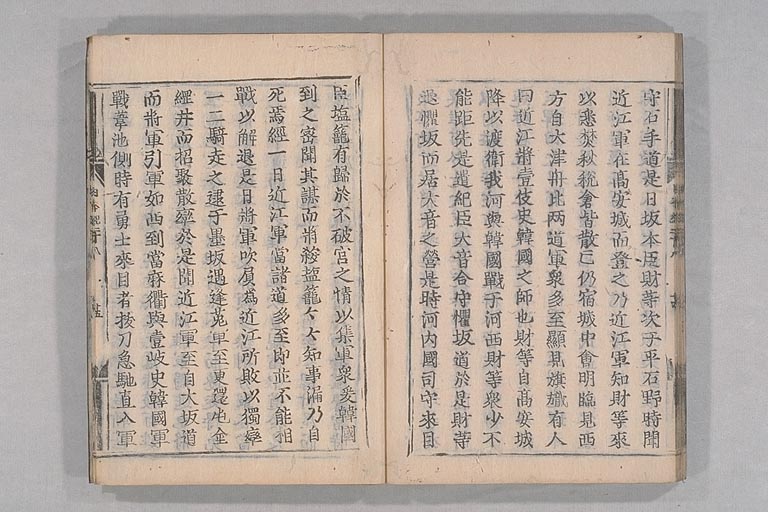 守石手道是日坂本臣財等次于平石野時聞
近江軍在高安城而登之乃近江軍知財等來
以悉焚秋税倉皆散亡仍宿城中會明臨見西
方自大津丹比两道軍衆多至顯見旗旘有人
曰近江將壹伎史韓國之師也財等自高安城
降以渡衛我河與韓國戰于河西財等衆少不
能距先是遣紀臣大音令守懼坂道於是財等
退懼坂而居大音之營是時河内國司守來目
臣塩籠有歸於不破宮之情以集軍衆爰韓國
到之密聞其謀而將殺塩籠々々知事漏乃自
死焉經一日近江軍當諸道多至即並不能相
戰以解退是日將軍吹負爲近江所敗以獨率
一二騎走之逮于墨坂遇逢菟軍至更還屯金
綱井而招聚散卒於是聞近江軍至自大坂道
而將軍引軍如西到當麻衢與壹岐史韓國軍
戰葦池側時有勇士來目者拔刀急馳直入軍